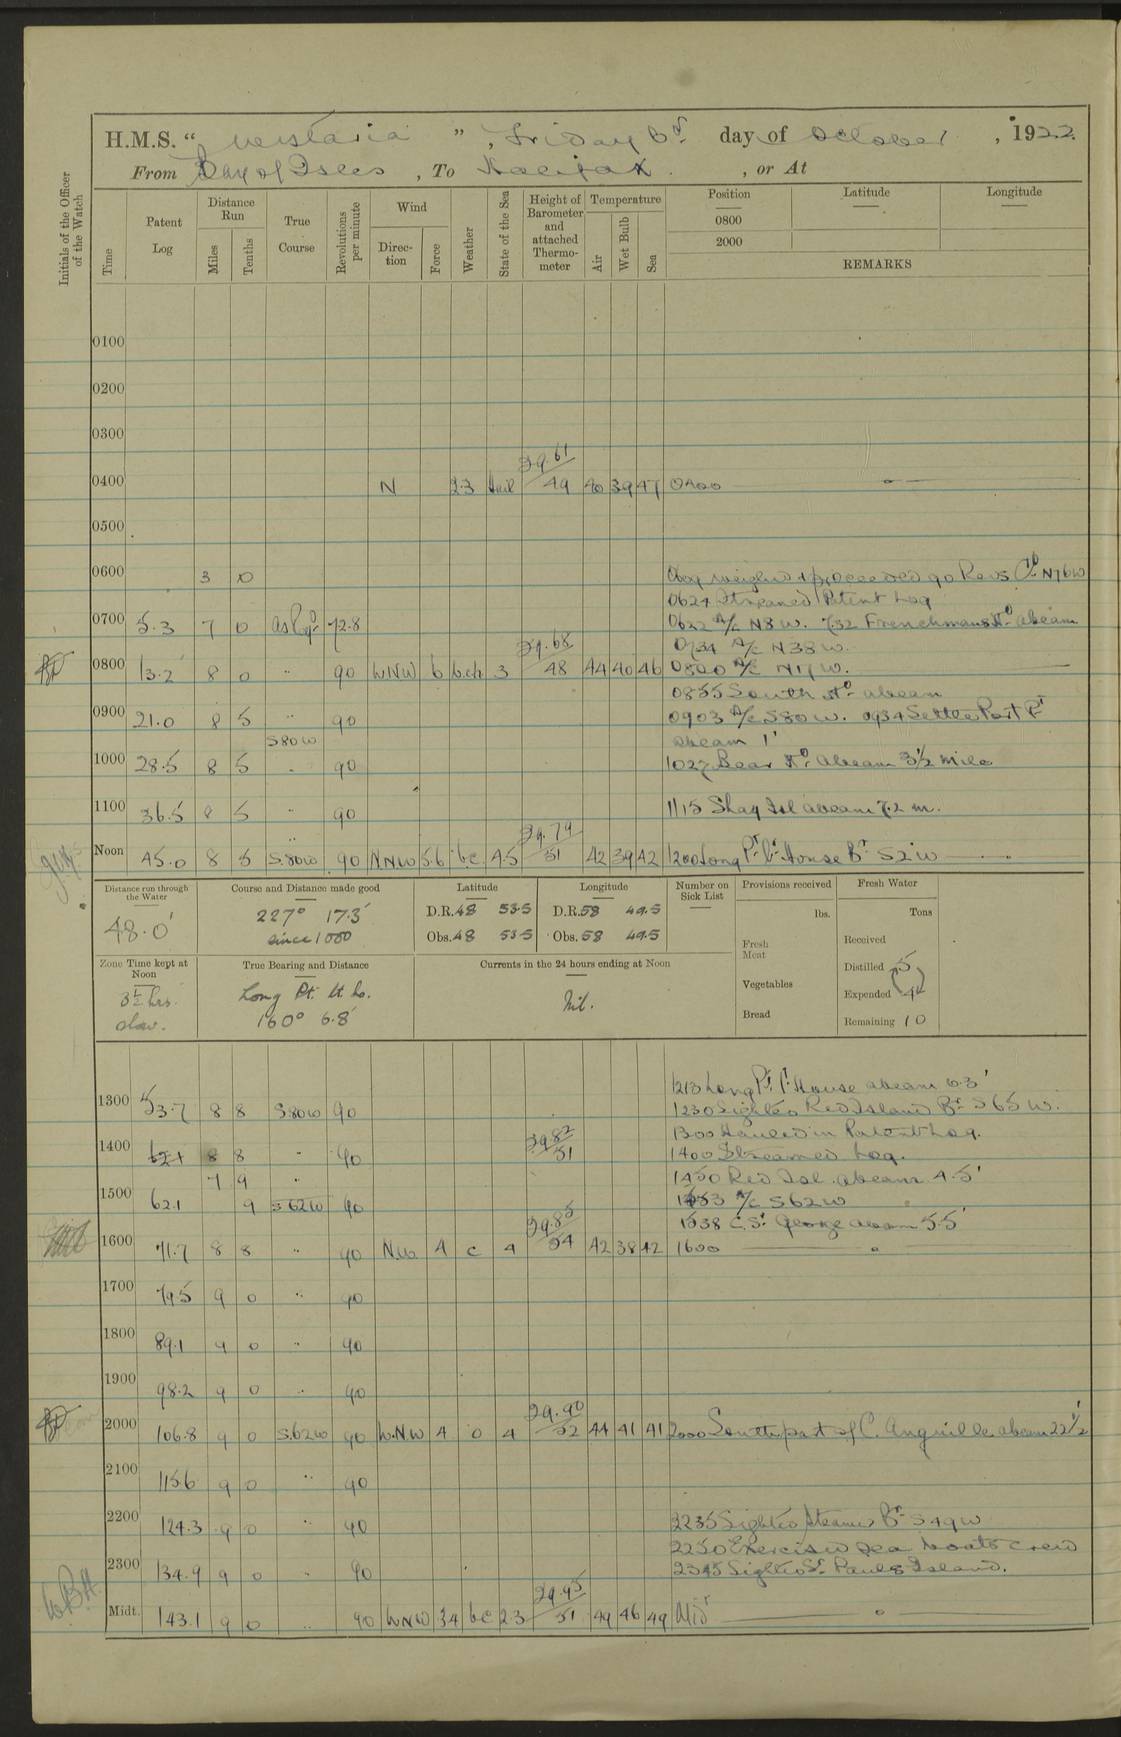 H.M.S. " Wistaria ", Friday day of October, 1922.
From Bay of Isles, To Halifax, or At
Initials of the Officer of the Watch
Time
Patent Log
Distance Run
Miles
Tenths
True Course
Revolutions per minute
Wind
Direc-tion
Force
Weather
State of the Sea
Height of Barometer and attached Thermo-meter
Temperature
Air
Wet Bulb
Sea
Position
0800
2000
Latitude
Longitude
REMARKS
0100
0200
0300
29.61
0400 N 2.3 49 40 39 47 0400
0500
0600 3 0 weighed & proceeded 90 Revs Co. N76W
0624 Streamed Patent Log
0700 5.3 7 0 as Reqd 72.8 0622 A/C N8W. 732 Frenchmans Hd. abeam
29.68 0734 A/C N38W.
0800 13.2 8 0 " 90 WNW 6 b.c.h 3 48 44 40 46 0800 A/C N17W.
0855 South Hd. abeam
0900 21.0 8 5 " 90 0903 A/C S80W. 0934 Little Port Pt
S80W abeam 1'
1000 28.5 8 5 " 90 1027 Bear Hd. abeam 3½ mile
1100 36.5 8 5 " 90 1115 Shag Isl abeam 7.2 m.
29.79
Noon 45.0 8 5 S.80W 90 NNW 5.6 bc 4.5 51 42 39 42 1200 Long Pt. Lt. House Bg. S2W
Distance run through the Water
48.0'
Course and Distance made good
227° 17.3'
since 1000
Latitude
D.R. 48 53.5
Obs. 48 53.5
Longitude
D.R. 58 49.5
Obs. 58 49.5
Number on Sick List
Provisions received
lbs.
Fresh Meat
Vegetables
Bread
Fresh Water
Tons
Received
Distilled 5
Expended 4
Remaining 10
Zone Time kept at Noon
3½ hrs.
slow.
True Bearing and Distance
Long Pt. Lt. Ho.
160° 6.8'
Currents in the 24 hours ending at Noon
Nil.
1213 Long Pt. Lt. House abeam 6.3'
1300 53.7 8 8 S80W 90 1230 Sighted Red Island Bg. S65W.
29.82 1300 Hauled in Patent Log.
1400 62.1 8 8 " 90 51 1400 Streamed Log.
7 9 " 1450 Red Isl. abeam 4.5'
1500 62.1 9 S62W 90 1453 A/C S62W
29.85 1538 C. St. George abeam 5.5'
1600 71.7 8 8 " 90 N.W. 4 c 4 54 42 38 42 1600
1700 79.5 9 0 " 90
1800 89.1 9 0 " 90
1900 98.2 9 0 " 90
29.90
2000 106.8 9 0 S.62W 90 W.N.W 4 o 4 52 44 41 41 2000 South part of C. Anguille abeam 22½'
2100 115.6 9 0 " 90
2200 124.3 9 0 " 90 2235 Sighted Steamer Bg. S49W
2250 Exercised sea boats crew
2300 134.9 9 0 " 90 2345 Sighted St. Pauls Island.
29.95
Midt. 143.1 9 0 " 90 WNW 34 bc 23 51 49 46 49 Mid
W.B.H.